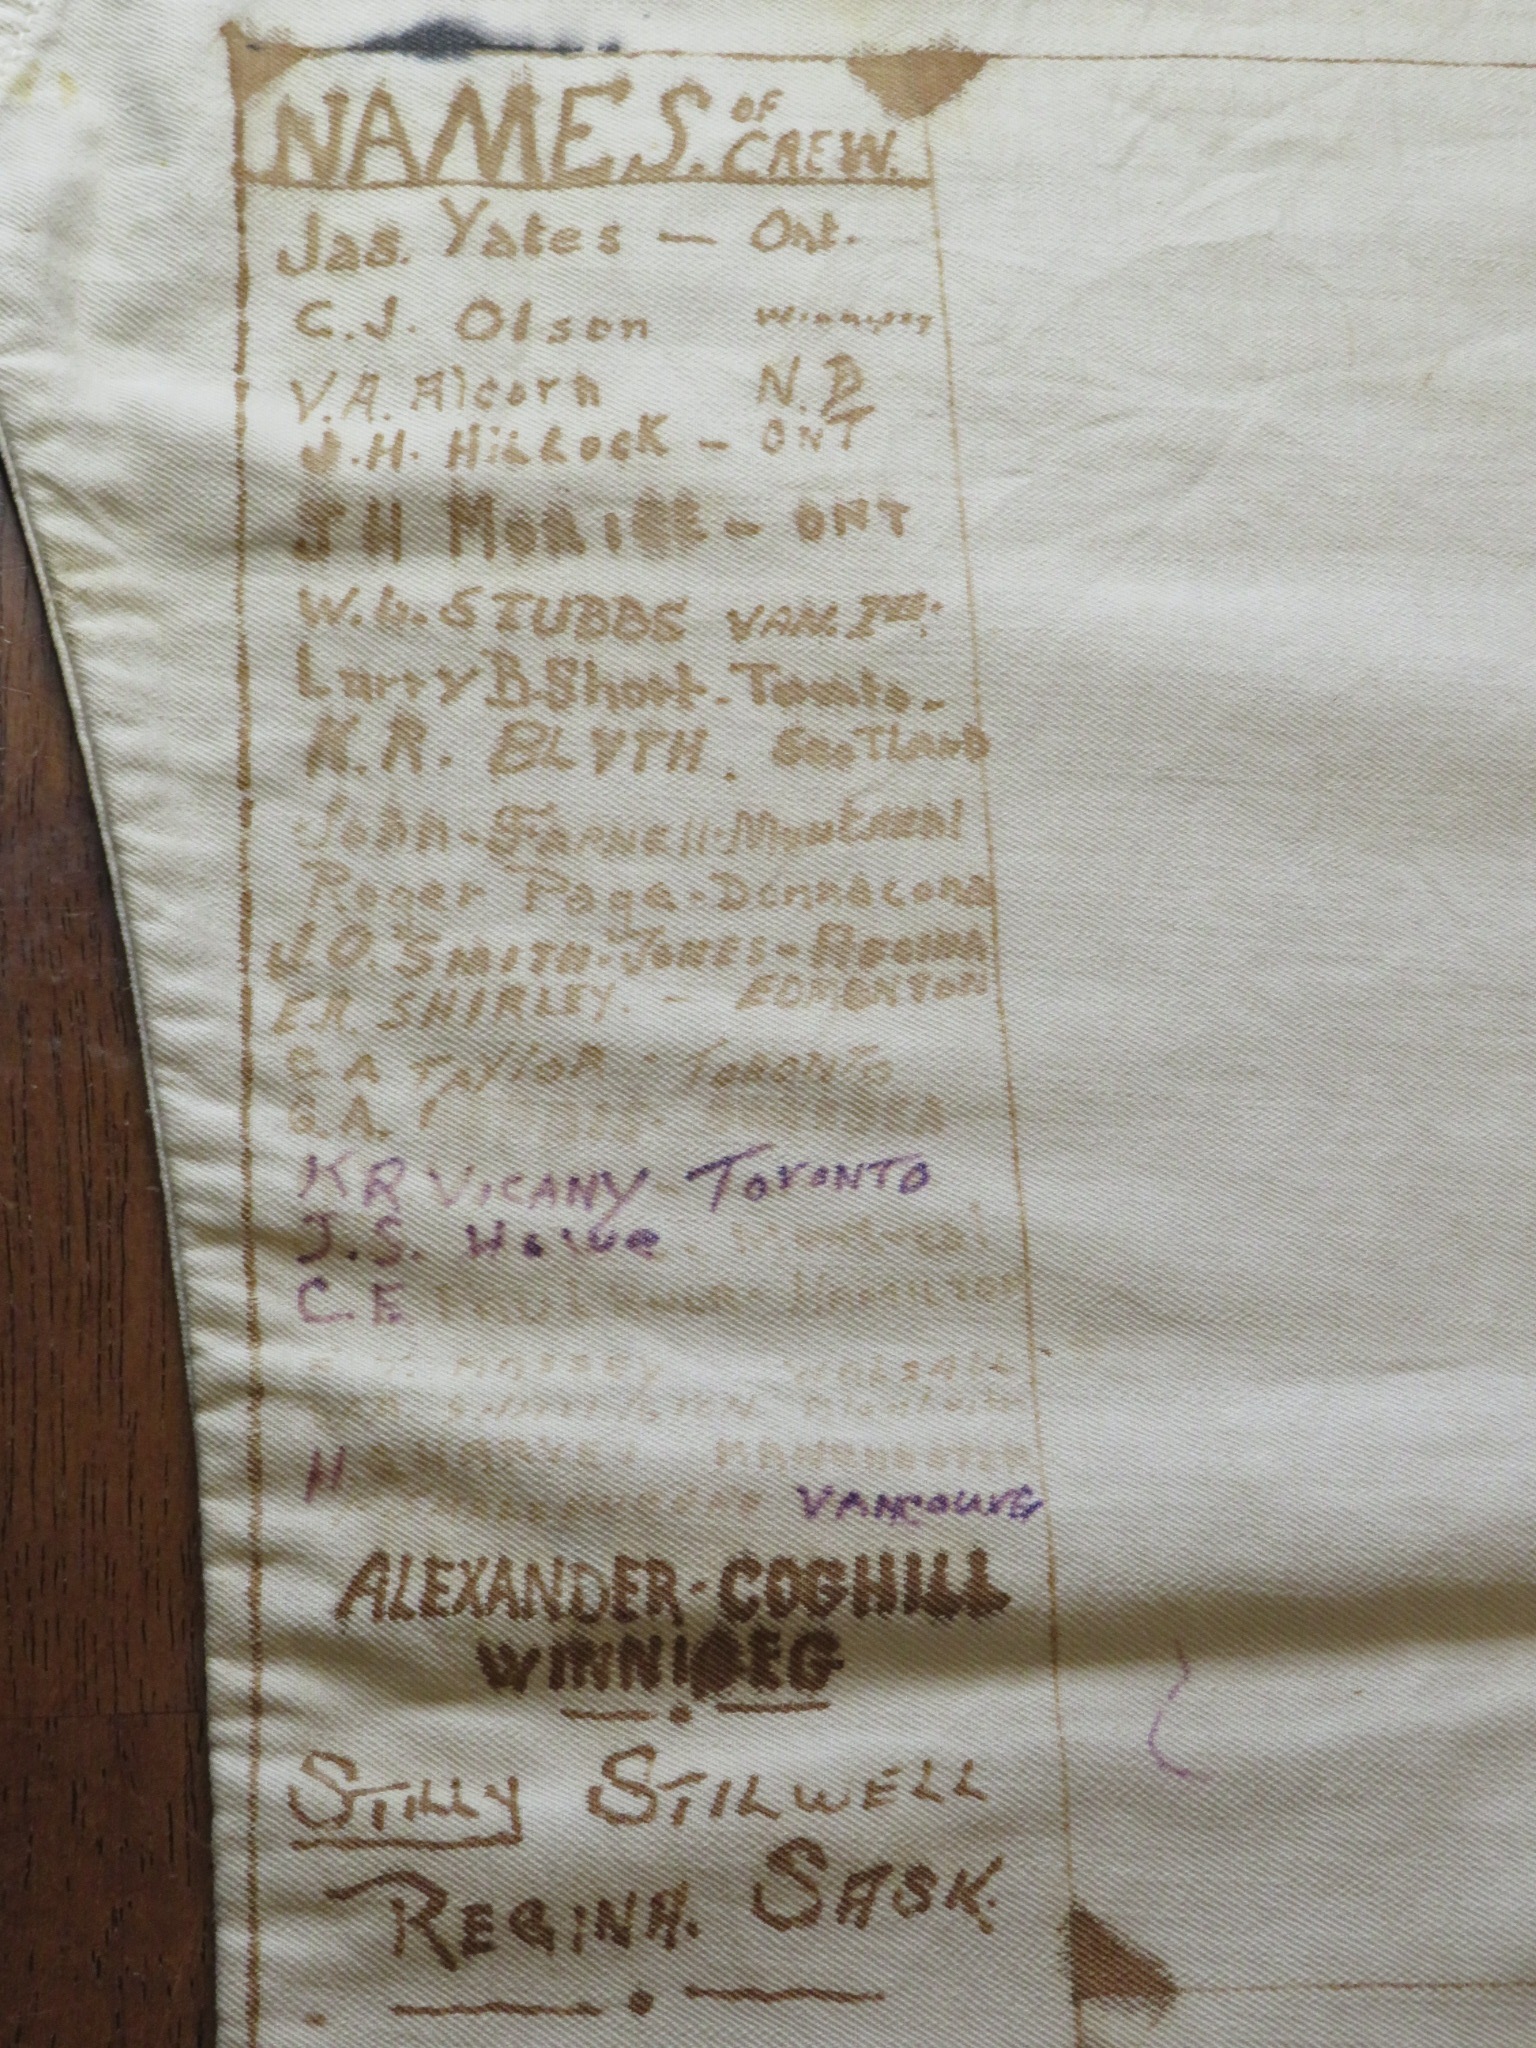 NAMES. OF CREW.
Jas. Yates — Ont.
C.J. Olson Winnipeg
V.A. Alcorn N.B
J.H. HILLOCK - ONT
J H MORICE - ONT
W.G. STUBBS VAN. Isl.
Larry B Short - Toronto -
K.R. BLYTH. SCOTLAND
John - Farnell - Montreal
Roger Page - Donnacona
J.O. SMITH-JONES - REGINA
E.R. SHIRLEY. - EDMONTON
TAYLOR - TORONTO
G.A.
K R VICANY TORONTO
J.S. Montreal
C.E. HAMILTON
MASSEY WALSALL
H MANCHESTER
VANCOUVE
ALEXANDER - COGHILL
WINNIPEG
STILLY STILWELL
REGINA. SASK.